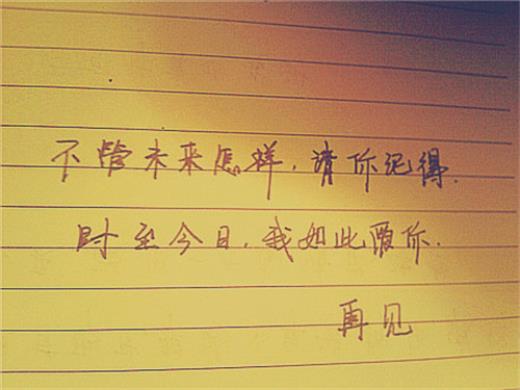 不管未来怎样,请你记得.
时至今日,我如此爱你.
再见